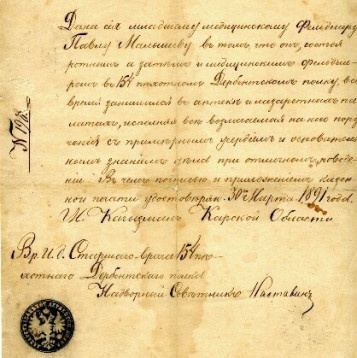 Дана сія младшему медицинскому Фельдшеру
Павлу Малышеву въ томъ, что онъ, состоя
ротнымъ а затѣмъ и медицинскимъ фельдше-
ромъ въ 154 пѣхотномъ Дербентскомъ полку, все
время занимался въ аптекѣ и лазаретныхъ па
латахъ, исполняя всѣ возлагаемыя на него пору
ченія съ примѣрнымъ усердіемъ и основатель
нымъ знаніемъ дѣла при отличномъ поведе
ніи Въ чемъ подписью и приложеніемъ казен
ной печати удостовѣряю. 30го Марта 1891 года.
Карской Области
№
Вр. И. д. Старшаго врача 154 пѣ-
хотнаго Дербентскаго полка
Надворный Совѣтникъ